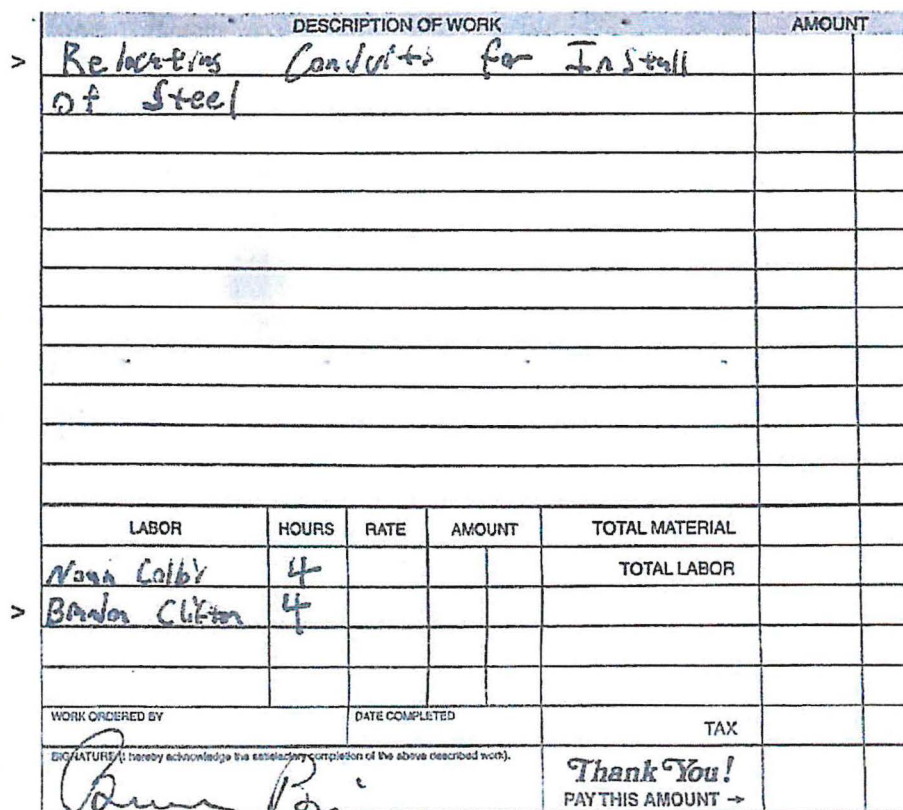 DESCRIPTION OF WORK AMOUNT
> Relocating Conduits for Install
of Steel
LABOR HOURS RATE AMOUNT TOTAL MATERIAL
4 TOTAL LABOR
> Brandon Clifton 4
WORK ORDERED BY DATE COMPLETED TAX
SIGNATURE (I hereby acknowledge the satisfactory completion of the above described work).
Thank You!
PAY THIS AMOUNT →